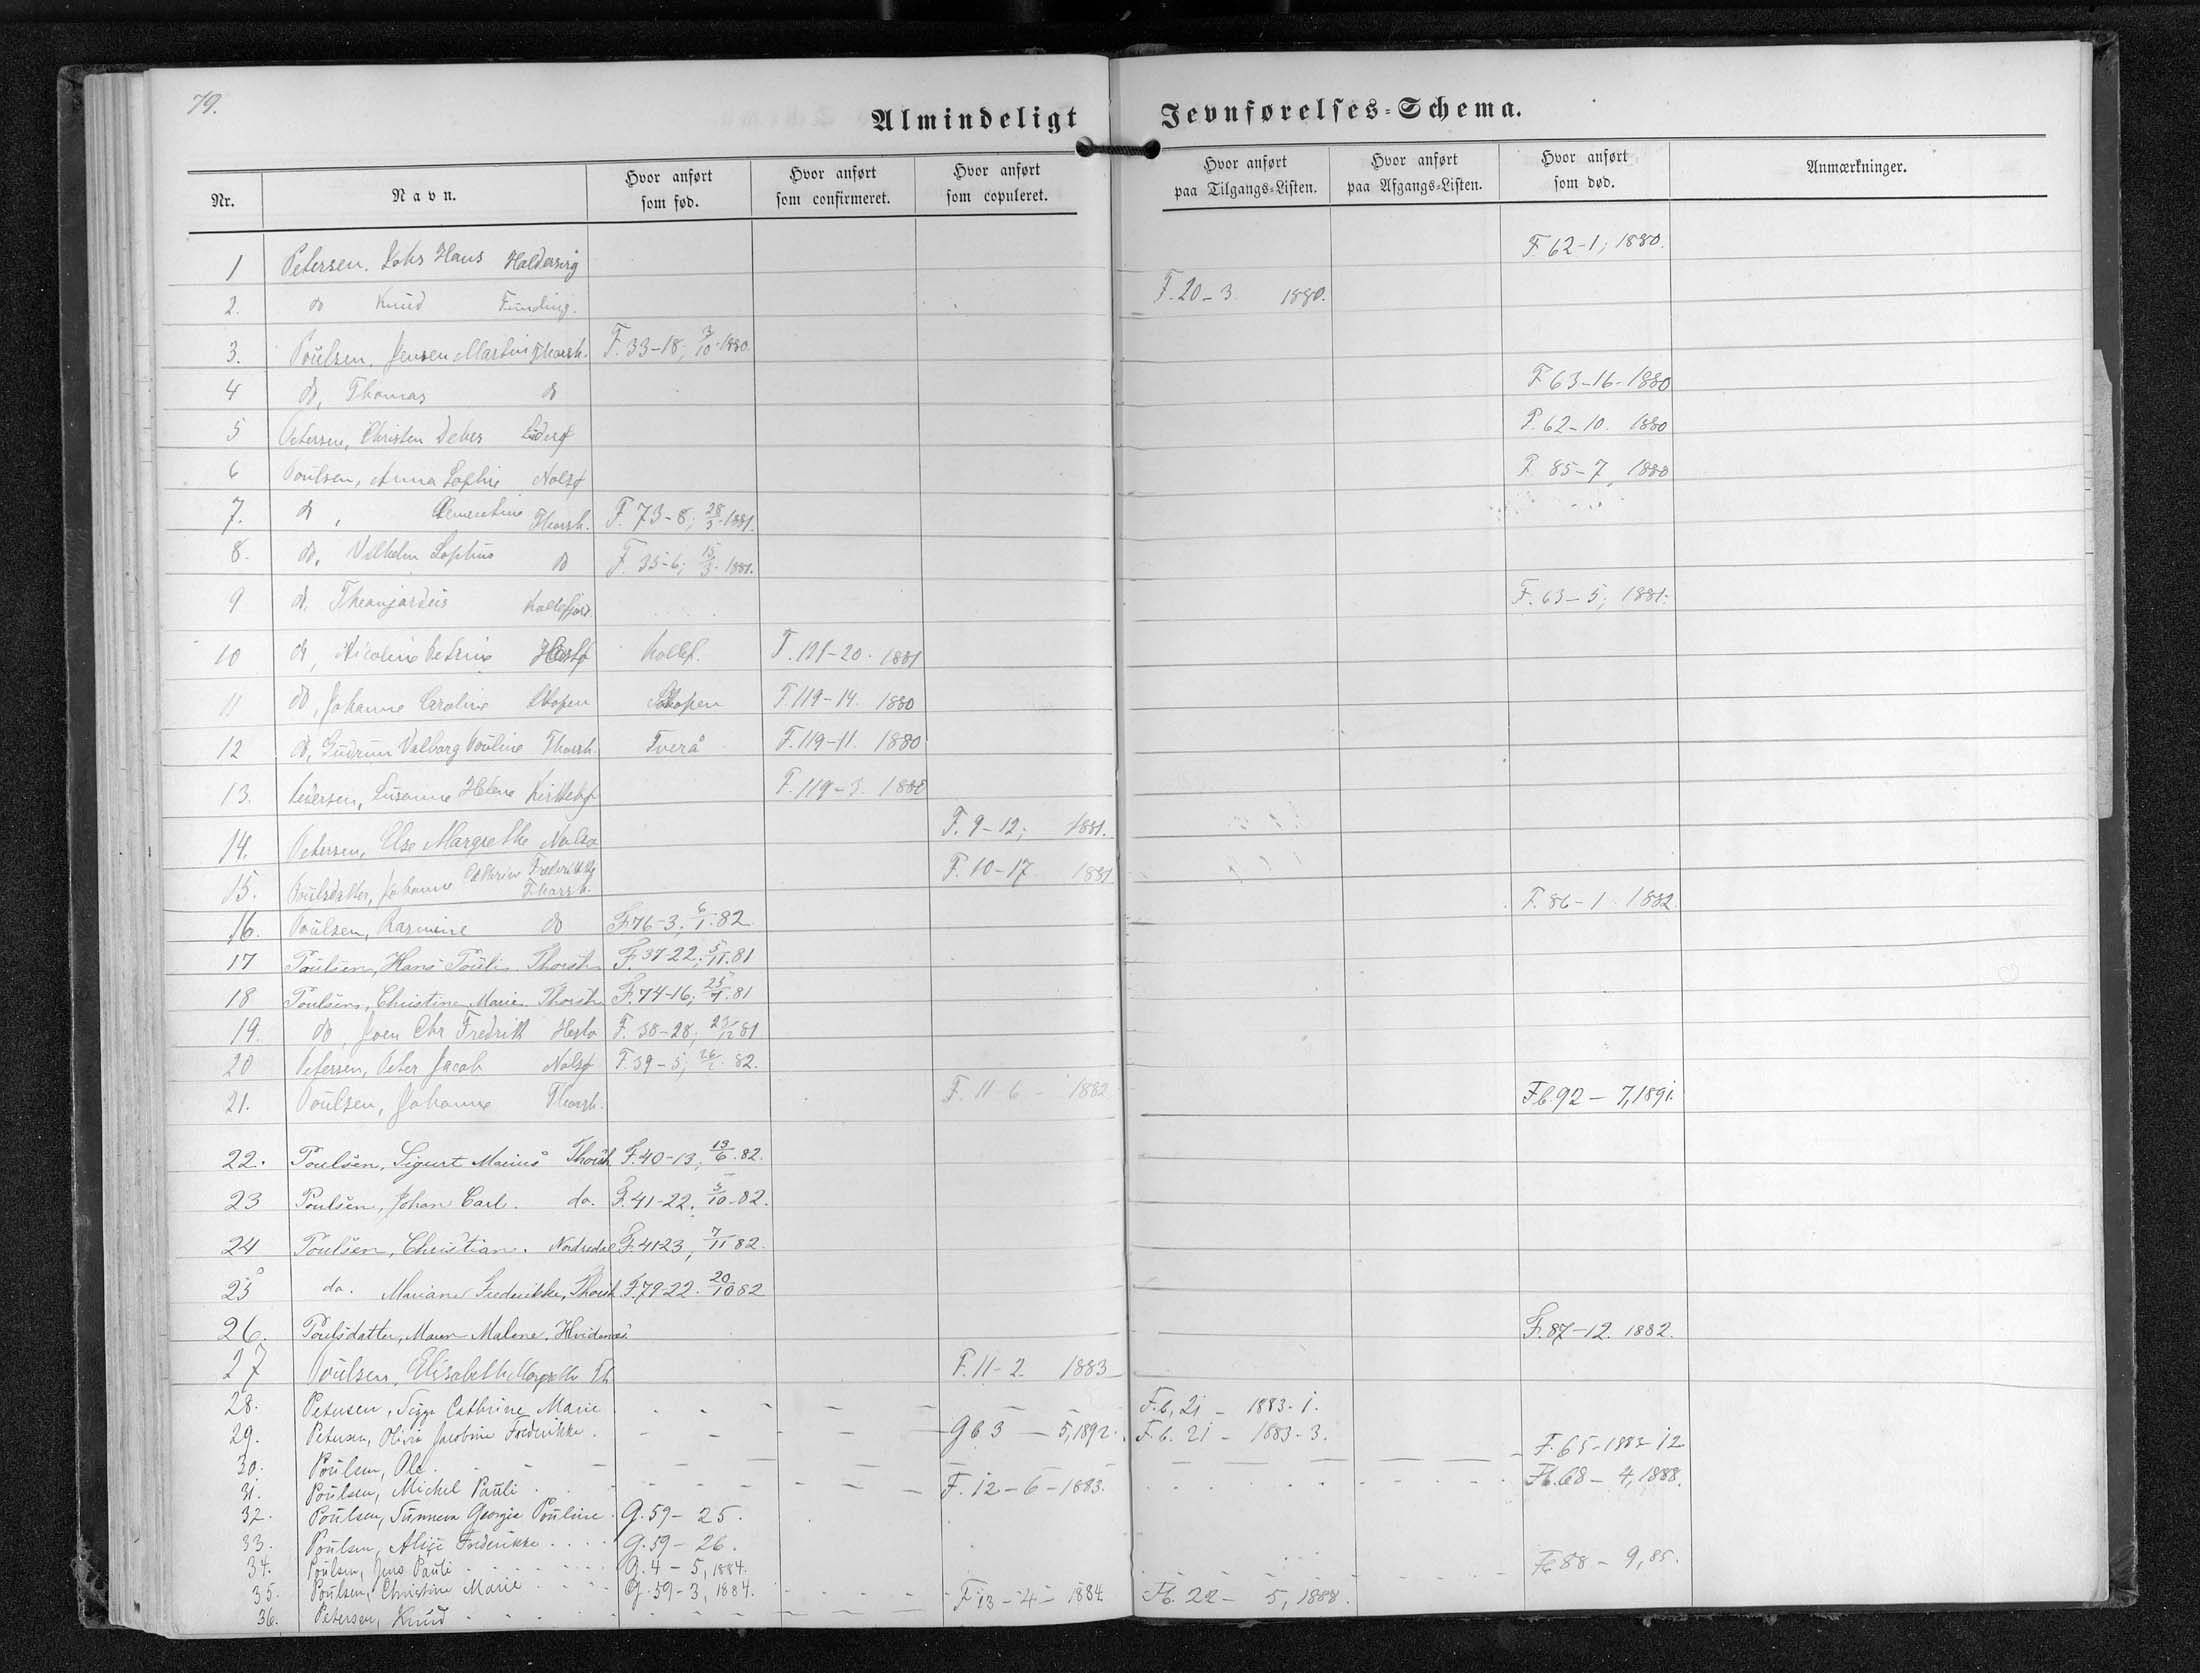 79.
Almindeligt Jevnførelses=Schema.
Nr. Navn. Hvor anført som fød. Hvor anført som confirmeret. Hvor anført som copuleret. Hvor anført paa Tilgangs=Listen. Hvor anført paa Afgangs=Listen. Hvor anført som død. Anmærkninger.
1 Petersen. Hans F. 62-1; 1880.
2. do Knud F. 20-3. 1880.
3. Poulsen, Jensen Martin Thorsh. F. 33-18; 3/10-1880.
4 do, Thomas do F 63-16-1880
5 Petersen, Christen Debes F. 62-10. 1880
6 Poulsen, Anna Sophie Nolsø F. 85-7, 1880
7. do, Clementine Thorsh. F. 73-8; 28/3-1881.
8. do, Vilhelm Sophus do F. 35-6; 15/3-1881.
9 do, Kollefjord F. 63-5; 1881.
10 do, Nicoline Petrine Kollef. F. 121-20. 1881
11 do, Johanne Caroline F. 119-14. 1880
12 do, Gudrun Valborg Pouline Thorsh. Tverå F. 119-11. 1880
13. Petersen, Susanne Helene Kirkebø F. 119-3. 1880
14. Petersen, Else Margrethe Nolsø F. 9-12; 1881.
15. Poulsdatter, Johanne Cathrine Frederikke Thorsh. F. 10-17 1881
16. Poulsen, Rasmine do F. 76-3; 6/1. 82 F. 86-1. 1882.
17 Poulsen, Hans Pouli. Thorsh F. 37-22; 5/11. 81
18 Poulsen, Christine Marie. Thorsh F. 74-16; 25/7. 81
19. do, Joen Chr Fredrik Hestø F. 38-28; 23/12 81
20 Petersen, Peter Jacob Nolsø F. 39-5; 26/1. 82.
21. Poulsen, Johanne Thorsh. F. 11-6 - 1882 Fb. 92 - 7, 1891.
22. Poulsen, Sigurt Marius Thorsh F. 40-13; 13/6. 82.
23 Poulsen, Johan Carl. do. F. 41-22. 5/10-82.
24 Poulsen, Christian. Nordredal F. 41-23, 7/11 82.
25 do. Mariane Frederikke, Thorsh F. 79-22. 20/10 82
26. Poulsdatter, Maren Malene. Hvidenæs F. 87-12. 1882.
27 Poulsen, Elisabeth Margrethe Th F. 11-2. 1883
28. Petersen, Cathrine Marie F.b. 21 - 1883-1.
29. Petersen, Olivia Jacobine Frederikke. Gb 3 - 5, 1892. F.b. 21 - 1883-3.
30. Poulsen, Ole. F. 65-1883-12
31. Poulsen, Michel Pauli. F. 12-6-1883. Fb. 68 - 4, 1888.
32. Poulsen, Sunneva Georgia Pouline. G. 59 - 25.
33. Poulsen, Alise Frederikke G. 59 - 26.
34. Poulsen, Jens Pauli G. 4 - 5, 1884. Fb 88 - 9, 85.
35. Poulsen, Christine Marie G. 59-3, 1884.
36. Petersen, Knud F 13-4- 1884 Fb. 22 - 5, 1888.